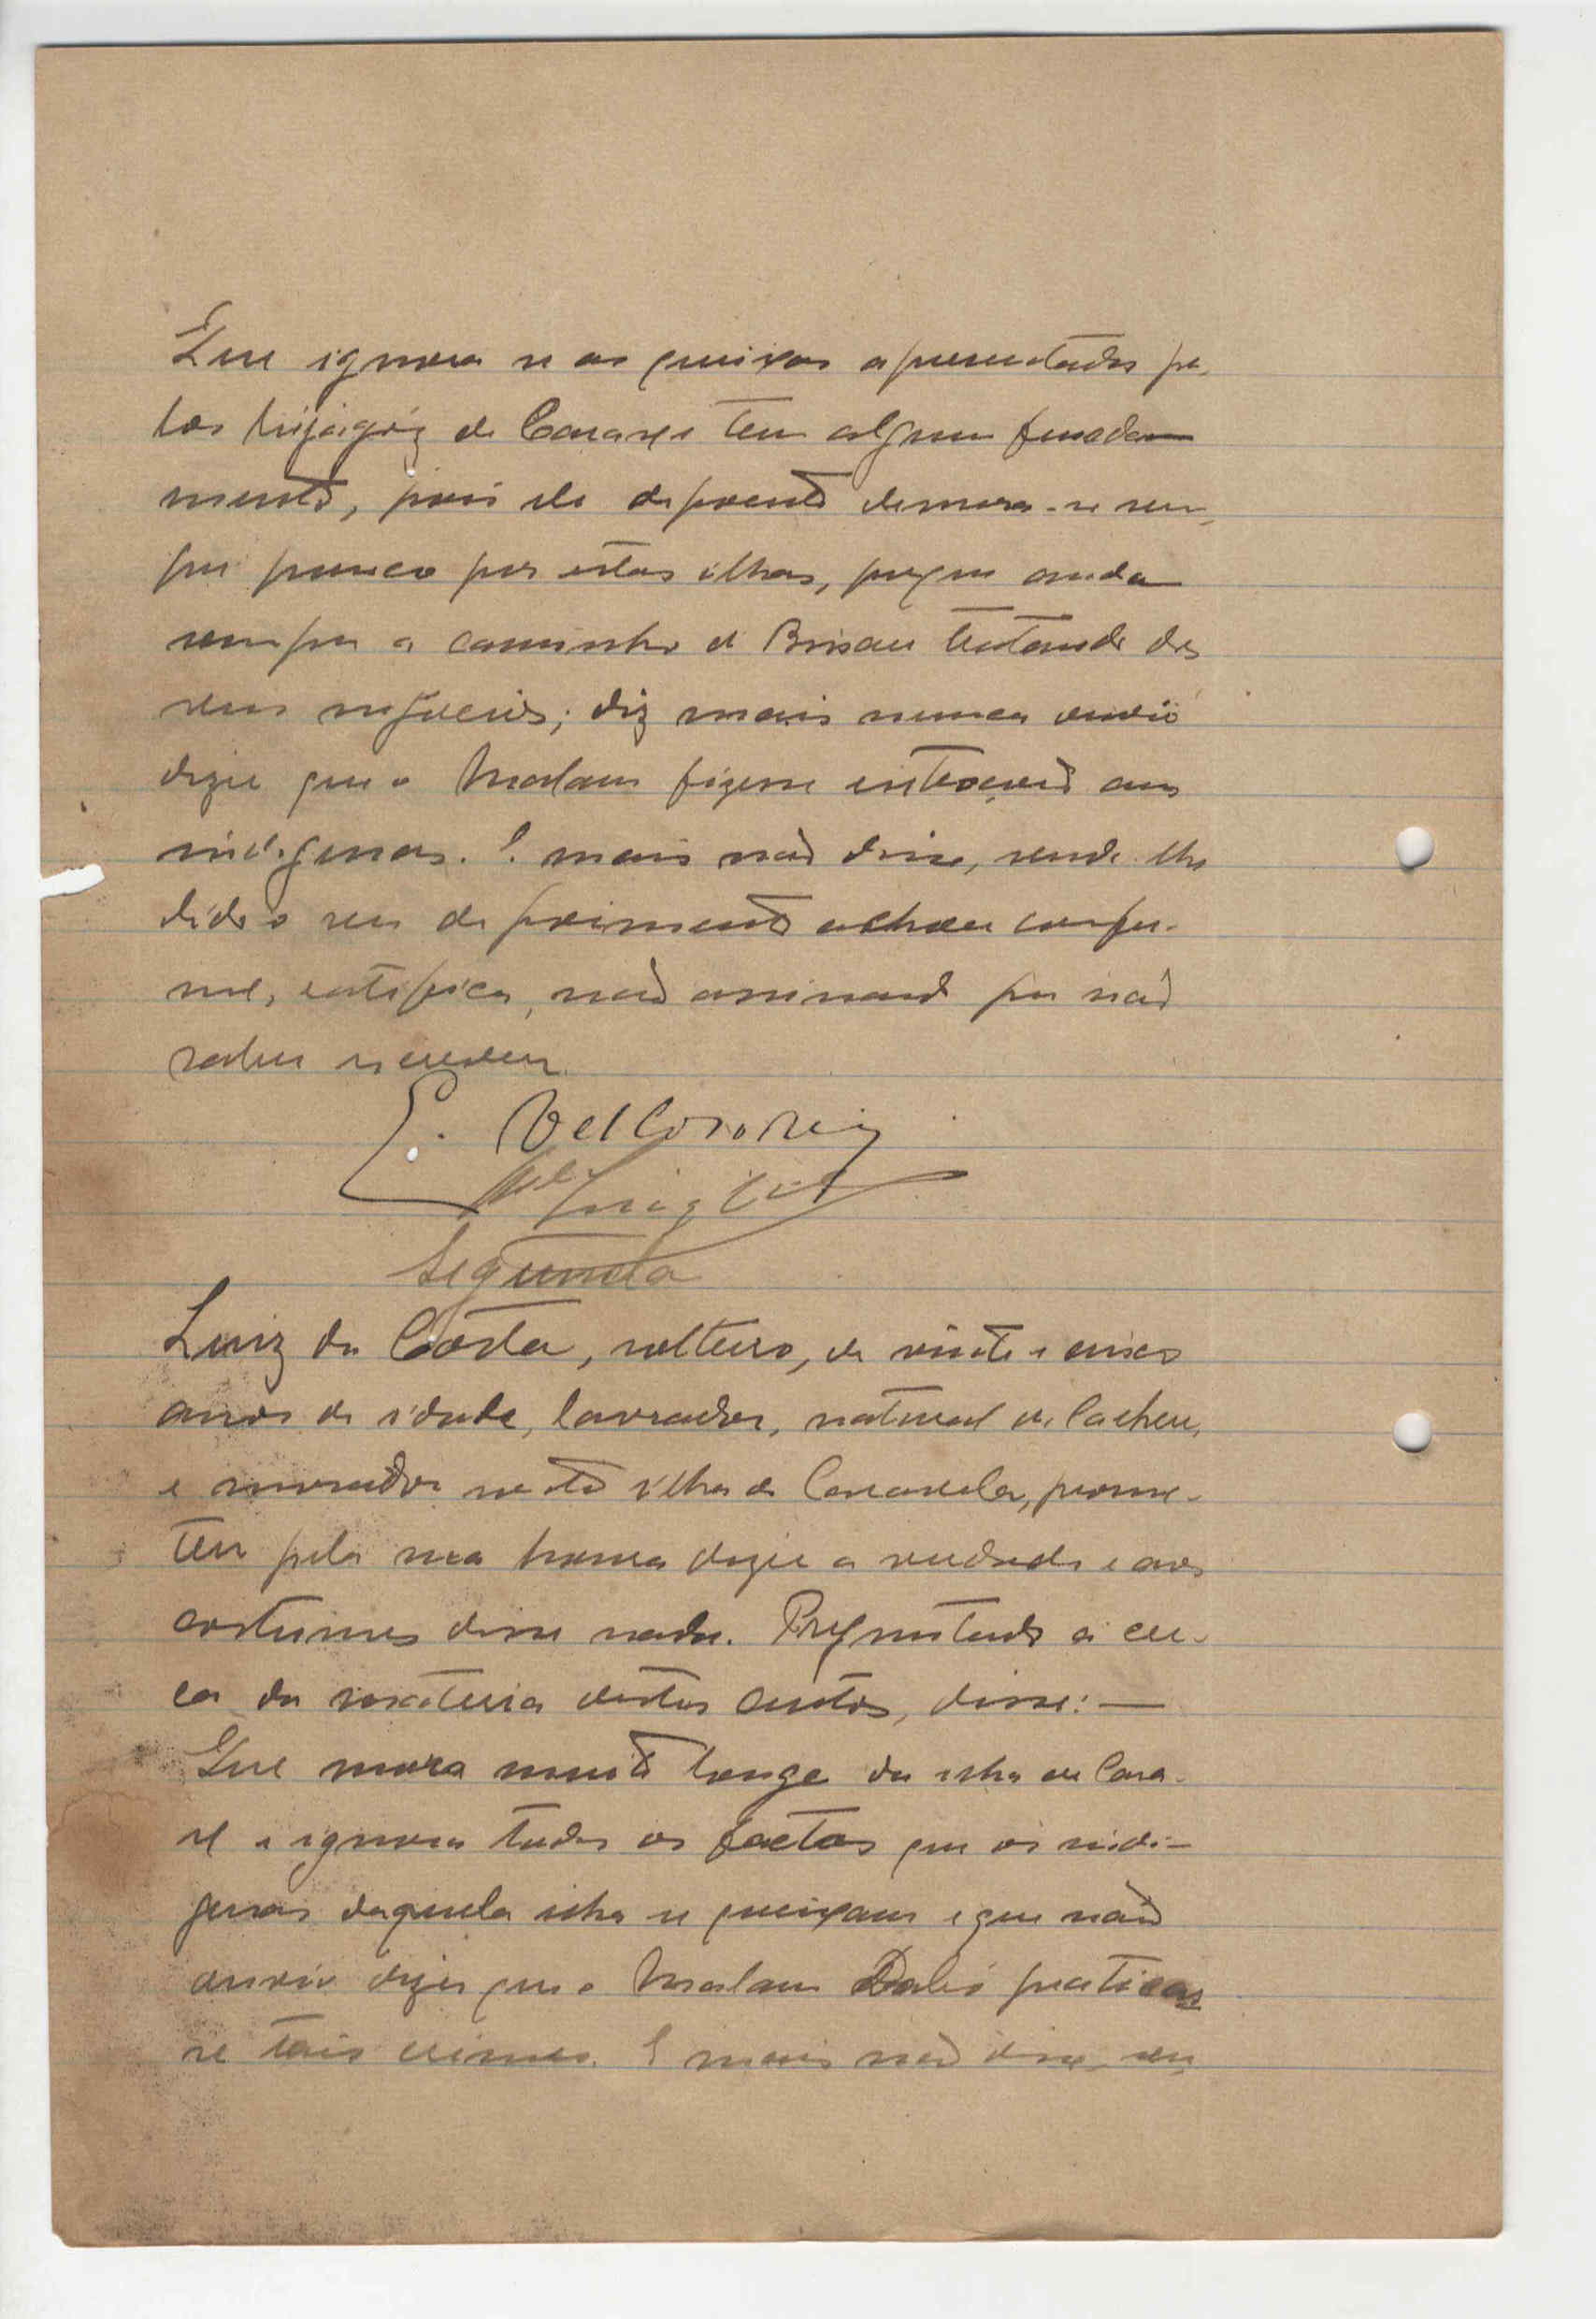 Que ignora se as queixas apresentadas pe-
los bijagóz de Caraxe tem algum funda-
mento, pois ele depoente demora-se sem-
pre pouco por estas ilhas, porque anda
sempre a caminho de Bissau tratando dos
seus negocios; diz mais nunca ouviu
dizer que o Malam fizesse extorsão aos
indigenas. E mais não disse, sendo-lhe
lido o seu depoimento achou confor-
me, ratifica, não assinando por não
saber escrever.
E.
Segunda
Luiz da Costa, solteiro, de vinte e cinco
anos de idade, lavrador, natural de Cacheu,
e morador nesta ilha de Caravela, prome-
teu pela sua honra dizer a verdade e aos
costumes disse nada. Preguntado á cer-
ca da materia destes autos, disse: —
Que mora muito longe da ilha de Cara-
xe e ignora todos os factos que os indi-
genas daquela ilha se queixam e que não
ouviu dizer que o Malam Dabó pratica​s-
se tais crimes. E mais não disse, sen-